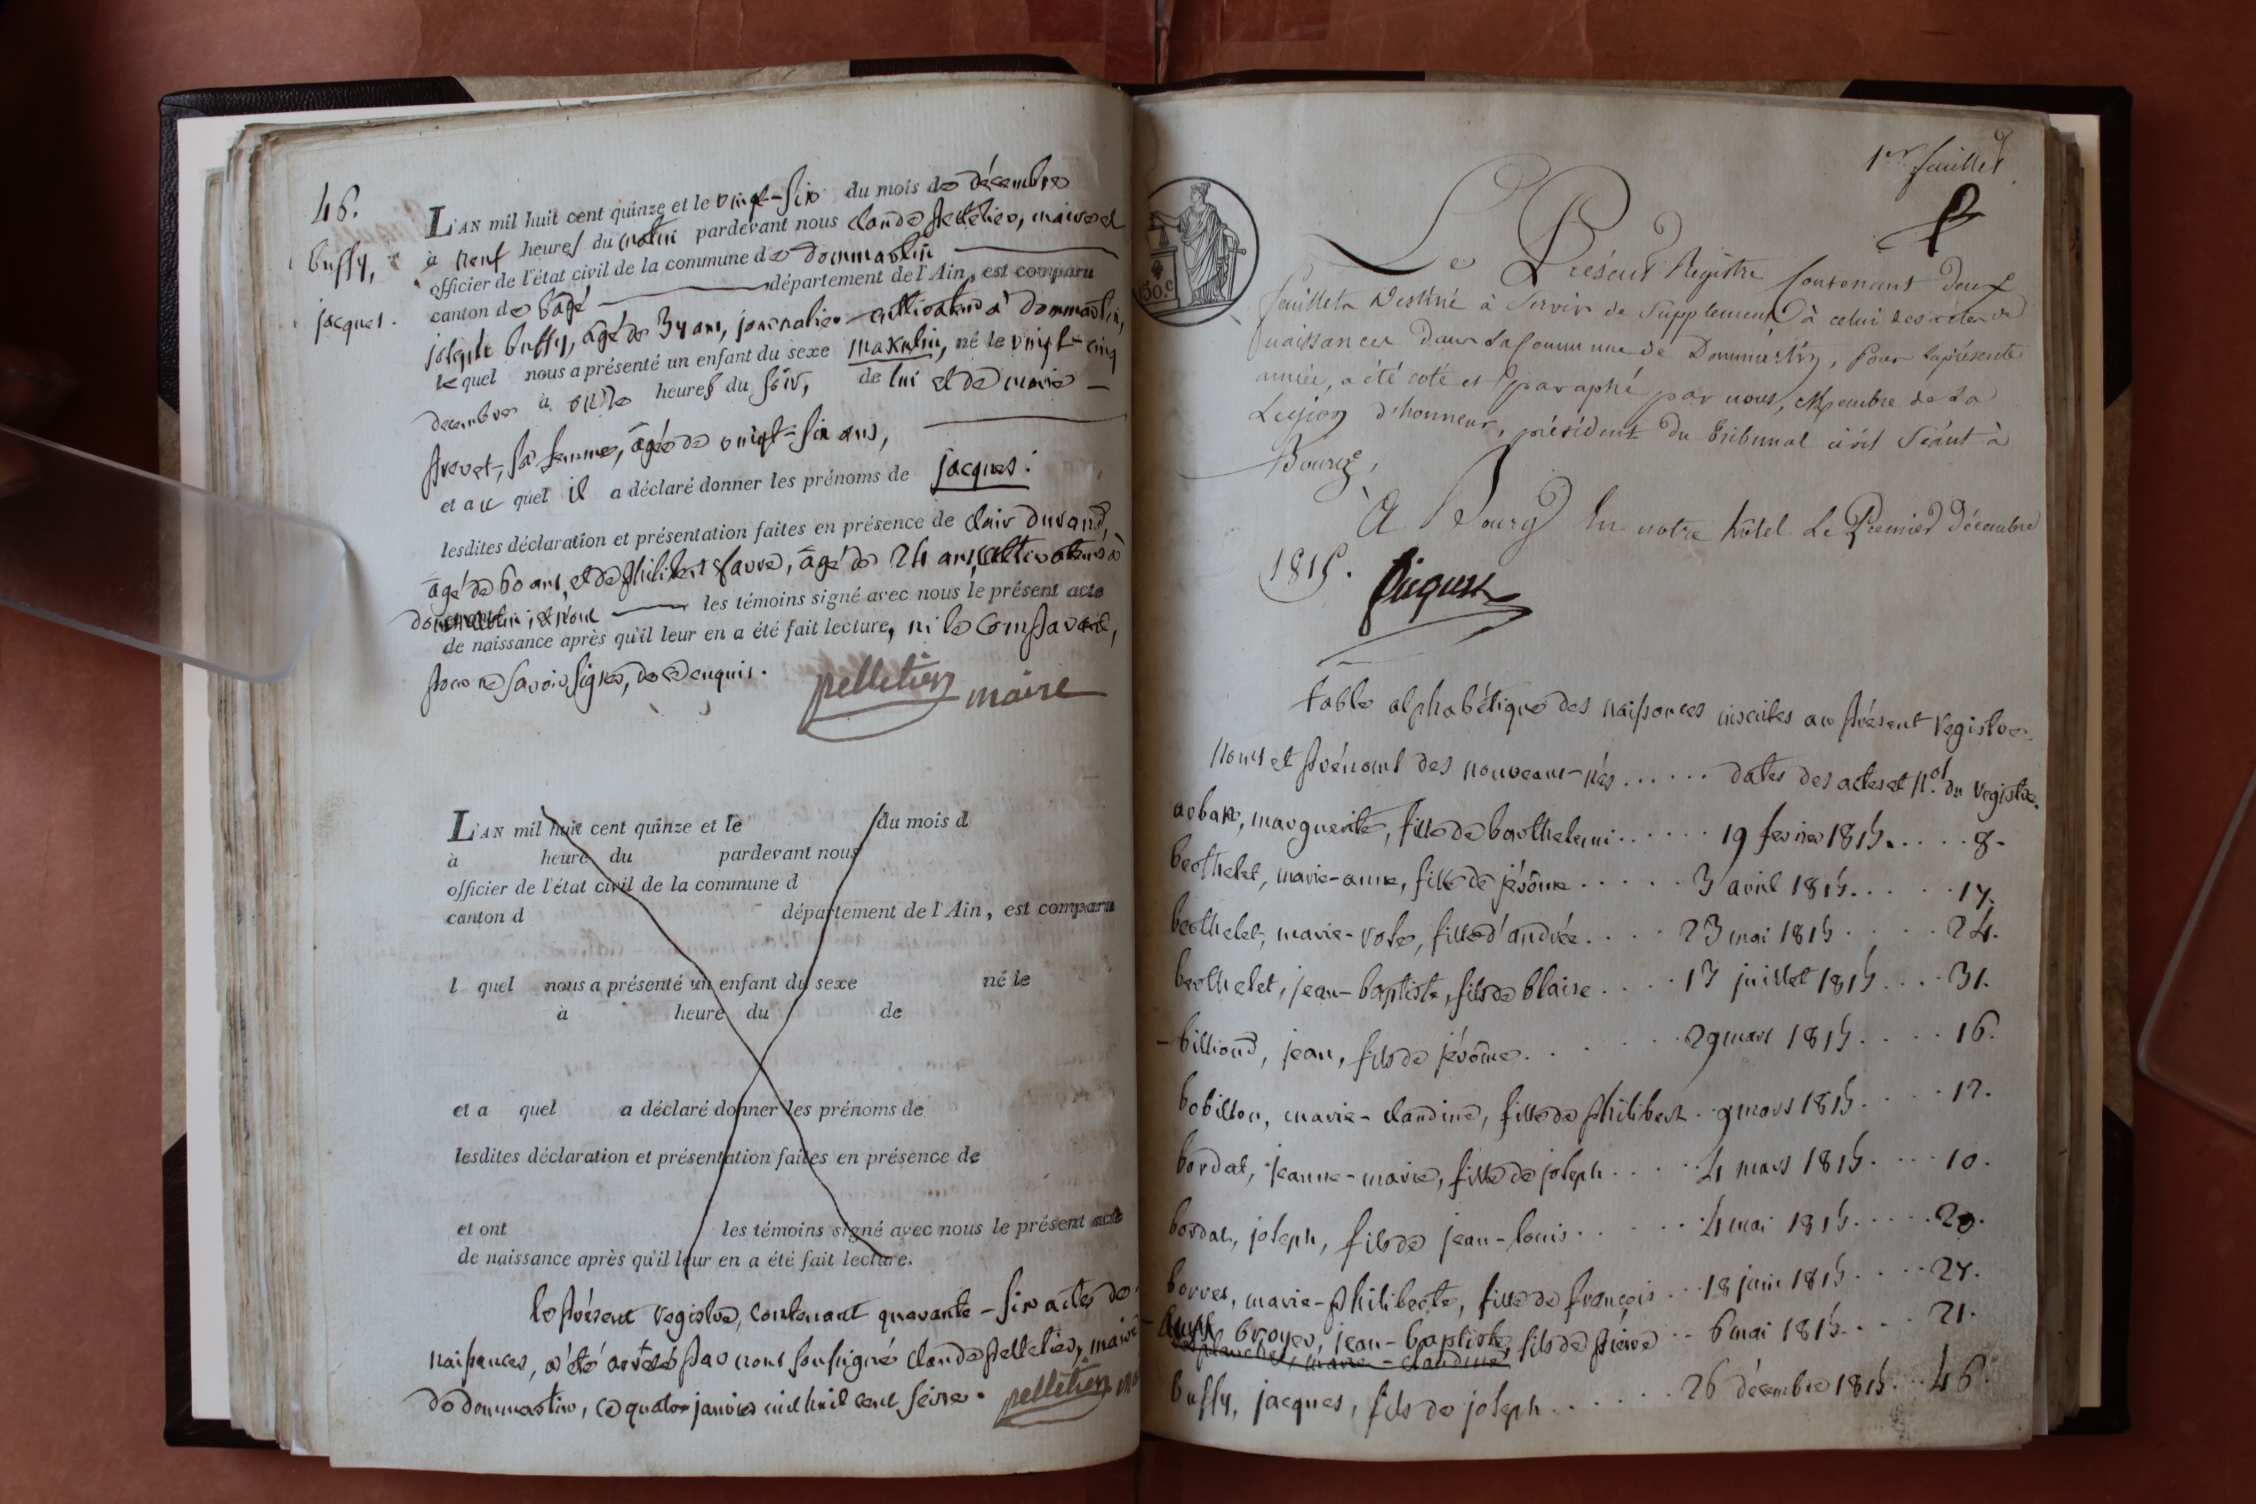 46.
buffy,
jacques.
L'AN mil huit cent quinze et le vingt-six du mois de décembre
à neuf heures du matin pardevant nous claude pelletier, maire et
officier de l'état civil de la commune de dommartin
canton de bâgé département de l'Ain, est comparu
joseph buffy, âgé de 34 ans, journalier cultivateur à dommartin,
lequel nous a présenté un enfant du sexe masculin, né le vingt-cinq
decembre à onze heures du soir, de lui et de marie
prevet, sa femme, âgée de vingt-six ans,
et au quel il a déclaré donner les prénoms de jacques.
lesdites déclaration et présentation faites en présence de clair durand,
âgé de 60 ans, et de philibert favre, âgé de 24 ans, cultivateurs à
dommartin, et n'ont les témoins signé avec nous le présent acte
de naissance après qu'il leur en a été fait lecture, ni le comparant,
pour ne savoir signer, de ce enquis.
pelletier maire
L'AN mil huit cent quinze et le du mois d
à heure du pardevant nous
officier de l'état civil de la commune d
canton d département de l'Ain, est comparu
l quel nous a présenté un enfant du sexe né le
à heure du de
et a quel a déclaré donner les prénoms de
lesdites déclaration et présentation faites en présence de
et ont les témoins signé avec nous le présent acte
de naissance après qu'il leur en a été fait lecture.
le présent registre, contenant quarante-six actes de
naissances, a été arrêté par nous soussigné claude pelletier, maire
de dommartin, ce quatre janvier mil huit cent seize.
pelletier
1er feuillet
50.c
Le Présent Registre Contenant deux
feuillets destiné à servir de Supplement à celui des actes de
naissances dans la Commune de Dommartin, pour la présente
année, a été coté et paraphé par nous, Membre de la
Legion d'honneur, président du tribunal civil séant à
Bourg,
A Bourg En notre hôtel Le Premier Décembre
1815.
table alphabétique des naissances inscrites au présent registre.
Noms et prénoms des nouveaux-nés ...... dates des actes et nos. du registre.
marguerite, fille de barthelemi ...... 19 fevrier 1815 ..... 8.
berthelet, marie-anne, fille de jérôme ..... 3 avril 1815 ..... 17.
berthelet, marie-rose, fille d'andrée .... 23 mai 1815 ..... 24.
berthelet, jean-baptiste, fils de blaise .... 13 juillet 1815 .... 31.
- billioud, jean, fils de jérôme ...... 29 mars 1815 .... 16.
bobillon, marie-claudine, fille de philibert .. 9 mars 1815 .... 12.
bordat, jeanne-marie, fille de joseph ..... 4 mars 1815 .... 10.
bordat, joseph, fils de jean-louis ...... 4 mai 1815 ..... 20.
borret, marie-philiberte, fille de françois ... 18 juin 1815 .... 27.
broyer, jean-baptiste, fils de pierre .. 6 mai 1815 .... 21.
marie-claudine
buffy, jacques, fils de joseph ...... 26 décembre 1815 ... 46.